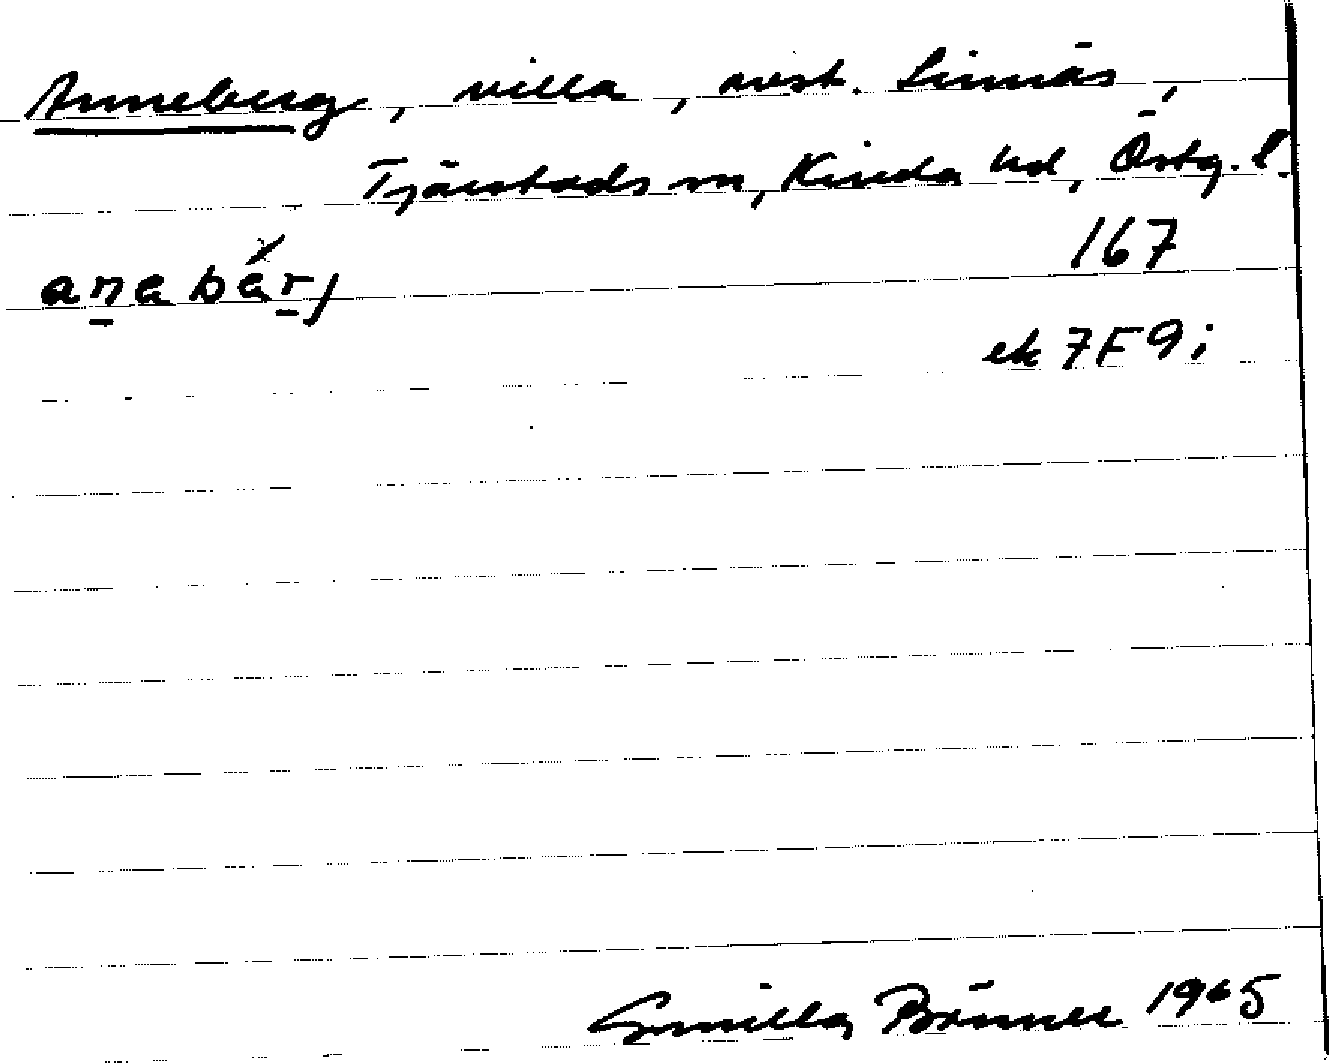 Anneberg, villa, vest. Linnäs,
Tjärstads sn, Kinda hd, Östg. l.
anabärj 167
ek 7F9i
Gunilla Brönner 1965